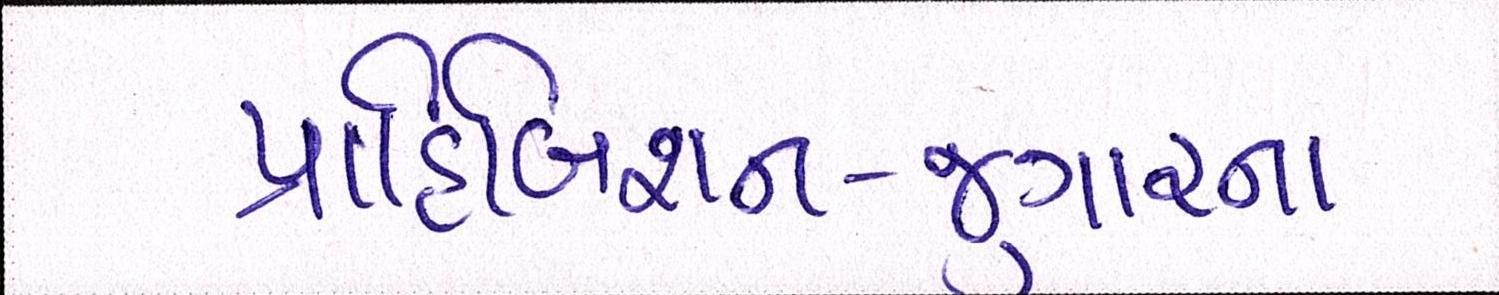 પ્રાહિબિશન-જુગારના